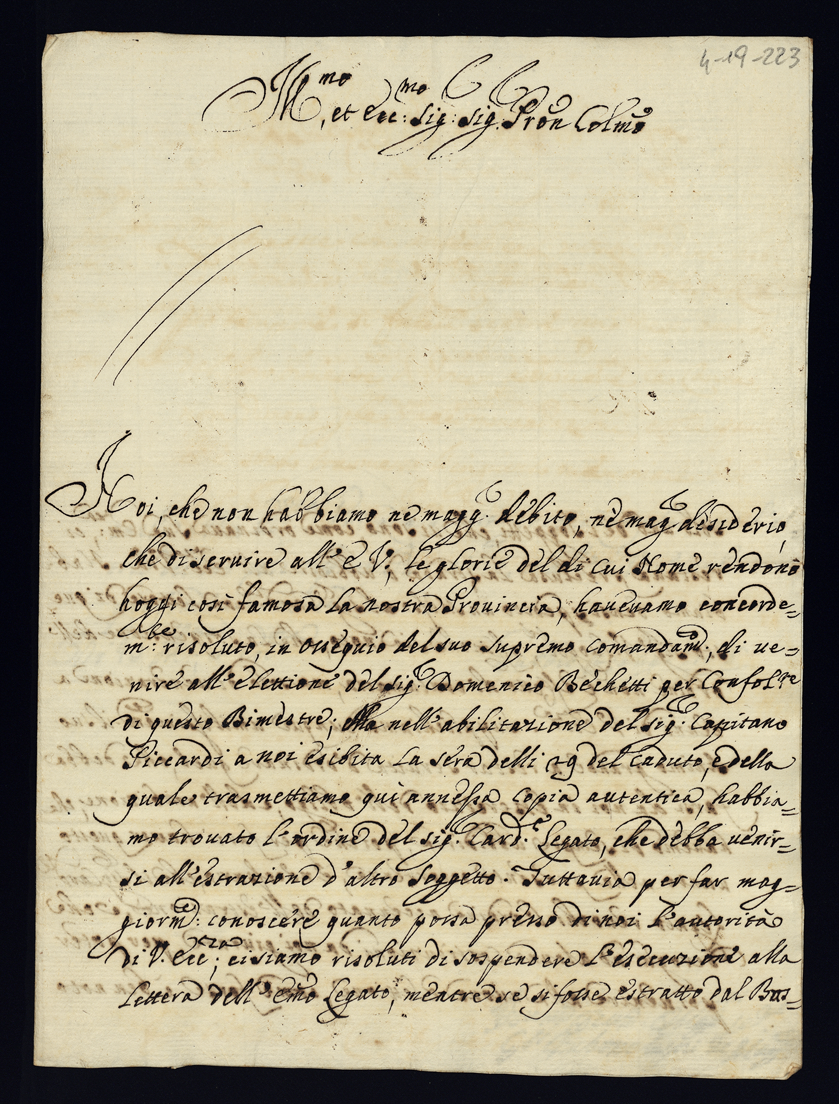 4-19-223
Ill.mo, et Ecc:mo Sig: Sig: Pron Colmo
Noi, che non habbiamo ne magg.r debito, ne mag.r desiderio,
che di seruire all'E V., le glorie del di cui Nome rendono
hoggi così famosa la nostra Prouincia, haueuamo concorde=
m:te risoluto, in ossequio del suo supremo comandam:to, di ue=
nire all'elettione del sig.r Domenico Bechetti per Confol.re
di questo Bimestre; Ma nell'abilitazione del sig.r Capitano
Piccardi a noi esibita la sera delli 29 del caduto, e della
quale trasmettiamo qui annessa copia autentica, habbia=
mo trouato l'ordine del sig.r Card.e Legato, che debba uenir=
si all'estrazione d'altro soggetto. Tuttauia per far mag=
giorm:te conoscere quanto possa presso di noi l'autorità
di V. Ecc:za, ci siamo risoluti di sospendere l'esecuzione alla
Lettera dell'emo Legato, mentre se si fosse estratto dal Bus=